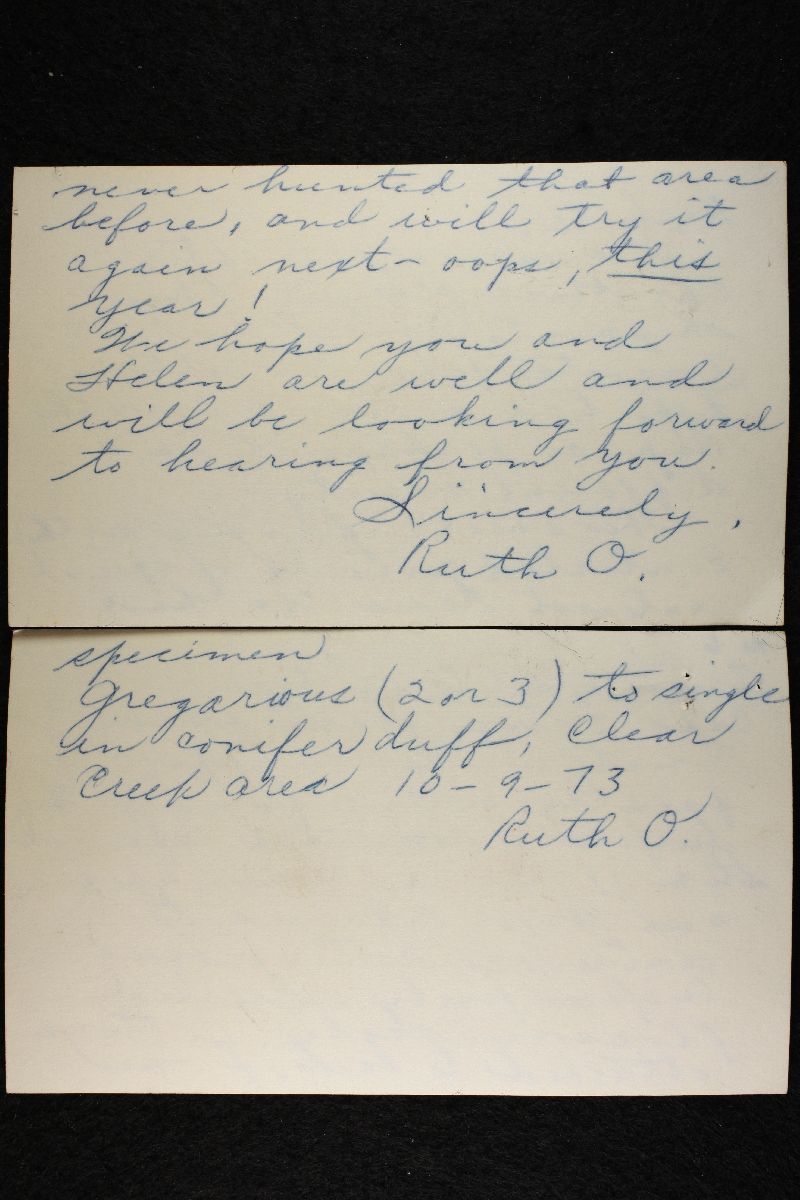 never hunted that area
before, and will try it
again next - oops, this
year!
We hope you and
Helen are well and
will be looking forward
to hearing from you.
Sincerely,
Ruth O.
specimen
Gregarious (2 or 3) to single
in conifer duff, Clear
Creek area 10-9-73
Ruth O.